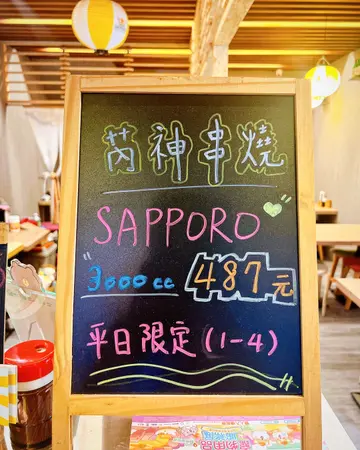 芮神串燒
SAPPORO
"3000cc" 487元
平日限定(1-4)